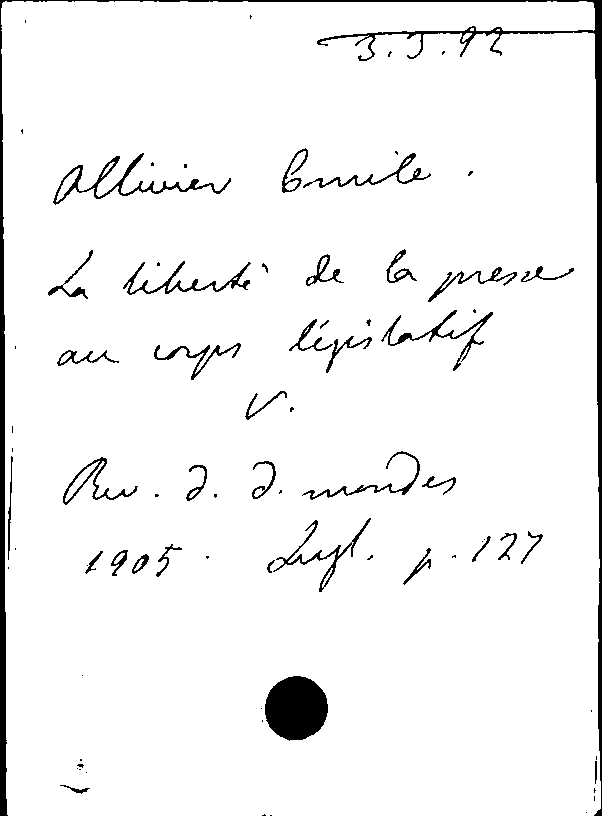 3.3.92
Ollivier Emile.
La liberté de la presse
au corps législatif
V.
Rev. d. d. mondes
1905. p. 127